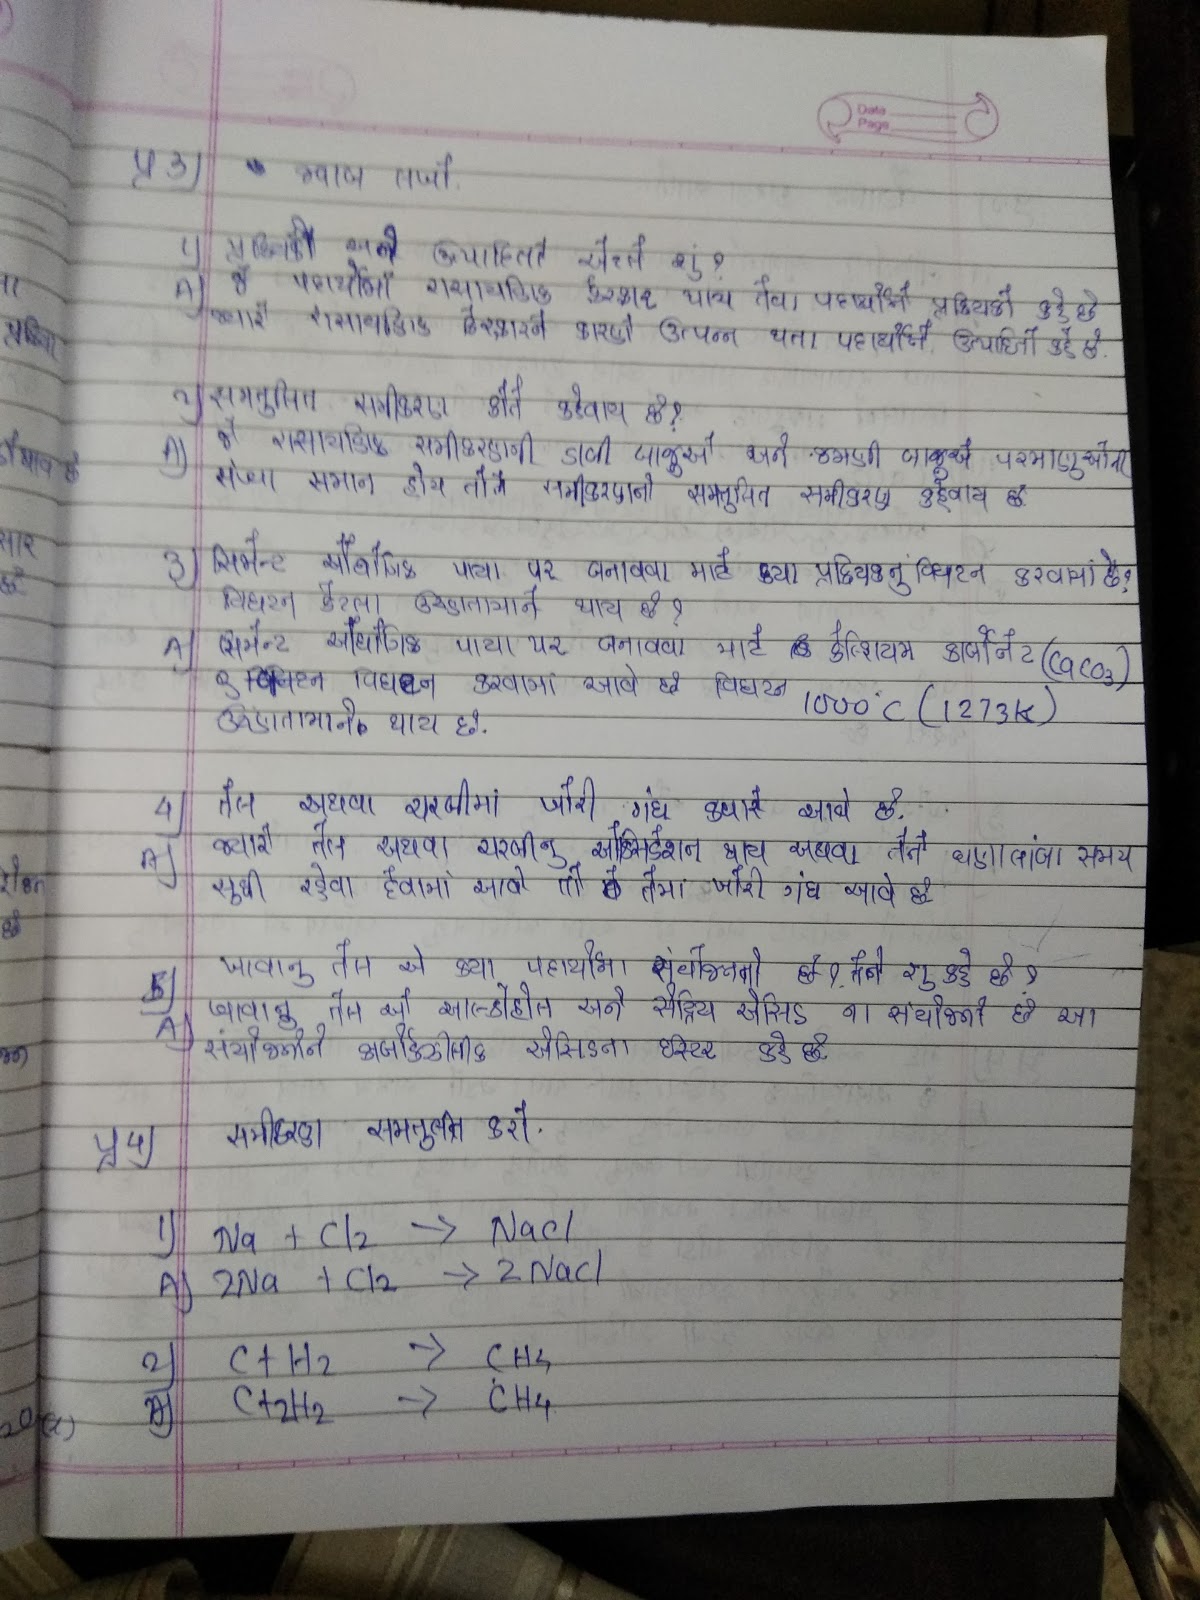 Date
Page
પ્ર 3) જવાબ લખો.
1) પ્રક્રિયકો અને ઉત્પાદિતો એટલે શું?
A) જે પદાર્થોમાં રાસાયણિક ફેરફાર થાય તેવા પદાર્થોને પ્રક્રિયકો કહે છે
જ્યારે રાસાયણિક ફેરફારને કારણે ઉત્પન્ન થતા પદાર્થોને ઉત્પાદિતો કહે છે.
2) સમતુલિત સમીકરણ કોને કહેવાય છે?
A) જે રાસાયણિક સમીકરણની ડાબી બાજુએ અને જમણી બાજુએ પરમાણુઓની
સંખ્યા સમાન હોય તેને સમીકરણનો સમતુલિત સમીકરણ કહેવાય છે
3) સિમેન્ટ ઔધોગિક પાયા પર બનાવવા માટે કયા પ્રક્રિયકનું વિઘટન કરવામાં છે?
વિઘટન કેટલા ઉષ્ણતામાને થાય છે?
A) સિમેન્ટ ઔધોગિક પાયા પર બનાવવા માટે કેલ્શિયમ કાર્બોનેટ (CaCO3)
વિઘટન કરવામાં આવે છે વિઘટન 1000°C (1273K)
ઉષ્ણતામાને થાય છે.
4) તેલ અથવા ચરબીમાં ખોરી ગંધ ક્યારે આવે છે.
A) જ્યારે તેલ અથવા ચરબીનુ ઓક્સિડેશન થાય અથવા તેને ઘણા લાંબા સમય
સુધી રહેવા દેવામાં આવે તો તેમાં ખોરી ગંધ આવે છે
5) ખાવાનુ તેલ એ કયા પદાર્થોના સંયોજનો છે? તેને શુ કહે છે?
A) ખાવાનુ તેલ એ આલ્કોહોલ અને સેંદ્રિય એસિડ ના સંયોજનો છે આ
સંયોજનોને કાર્બોક્ઝીલીક એસિડના ઇસ્ટર કહે છે.
પ્ર 4) સમીકરણ સમતુલીત કરો.
1) Na + Cl2 → NaCl
A) 2Na + Cl2 → 2NaCl
2) C+H2 → CH4
A) C+2H2 → CH4